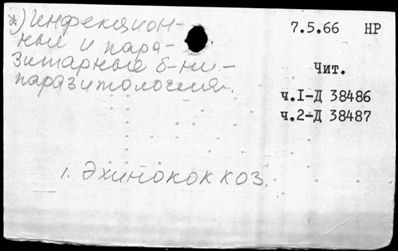 *) Инфекцион-
ные и пара-
зитарные б-ни -
паразитология.
7.5.66 НР
Чит.
ч.I-Д 38486
ч.2-Д 38487
1. Эхинококкоз.